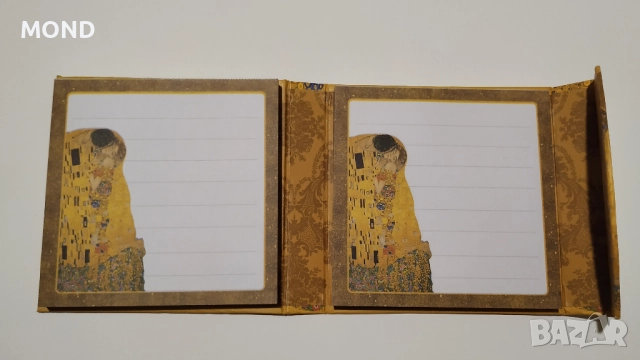 MOND
BAZAR